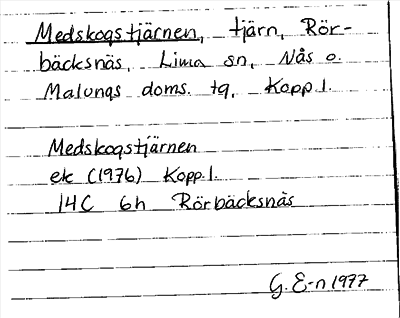 Medskogstjärnen, tjärn, Rör-
bäcksnäs, Lima sn, Nås o.
Malungs doms. tg, Kopp.l.
Medskogstjärnen
ek (1976) Kopp.l.
14C 6h Rörbäcksnäs
G. E-n 1977